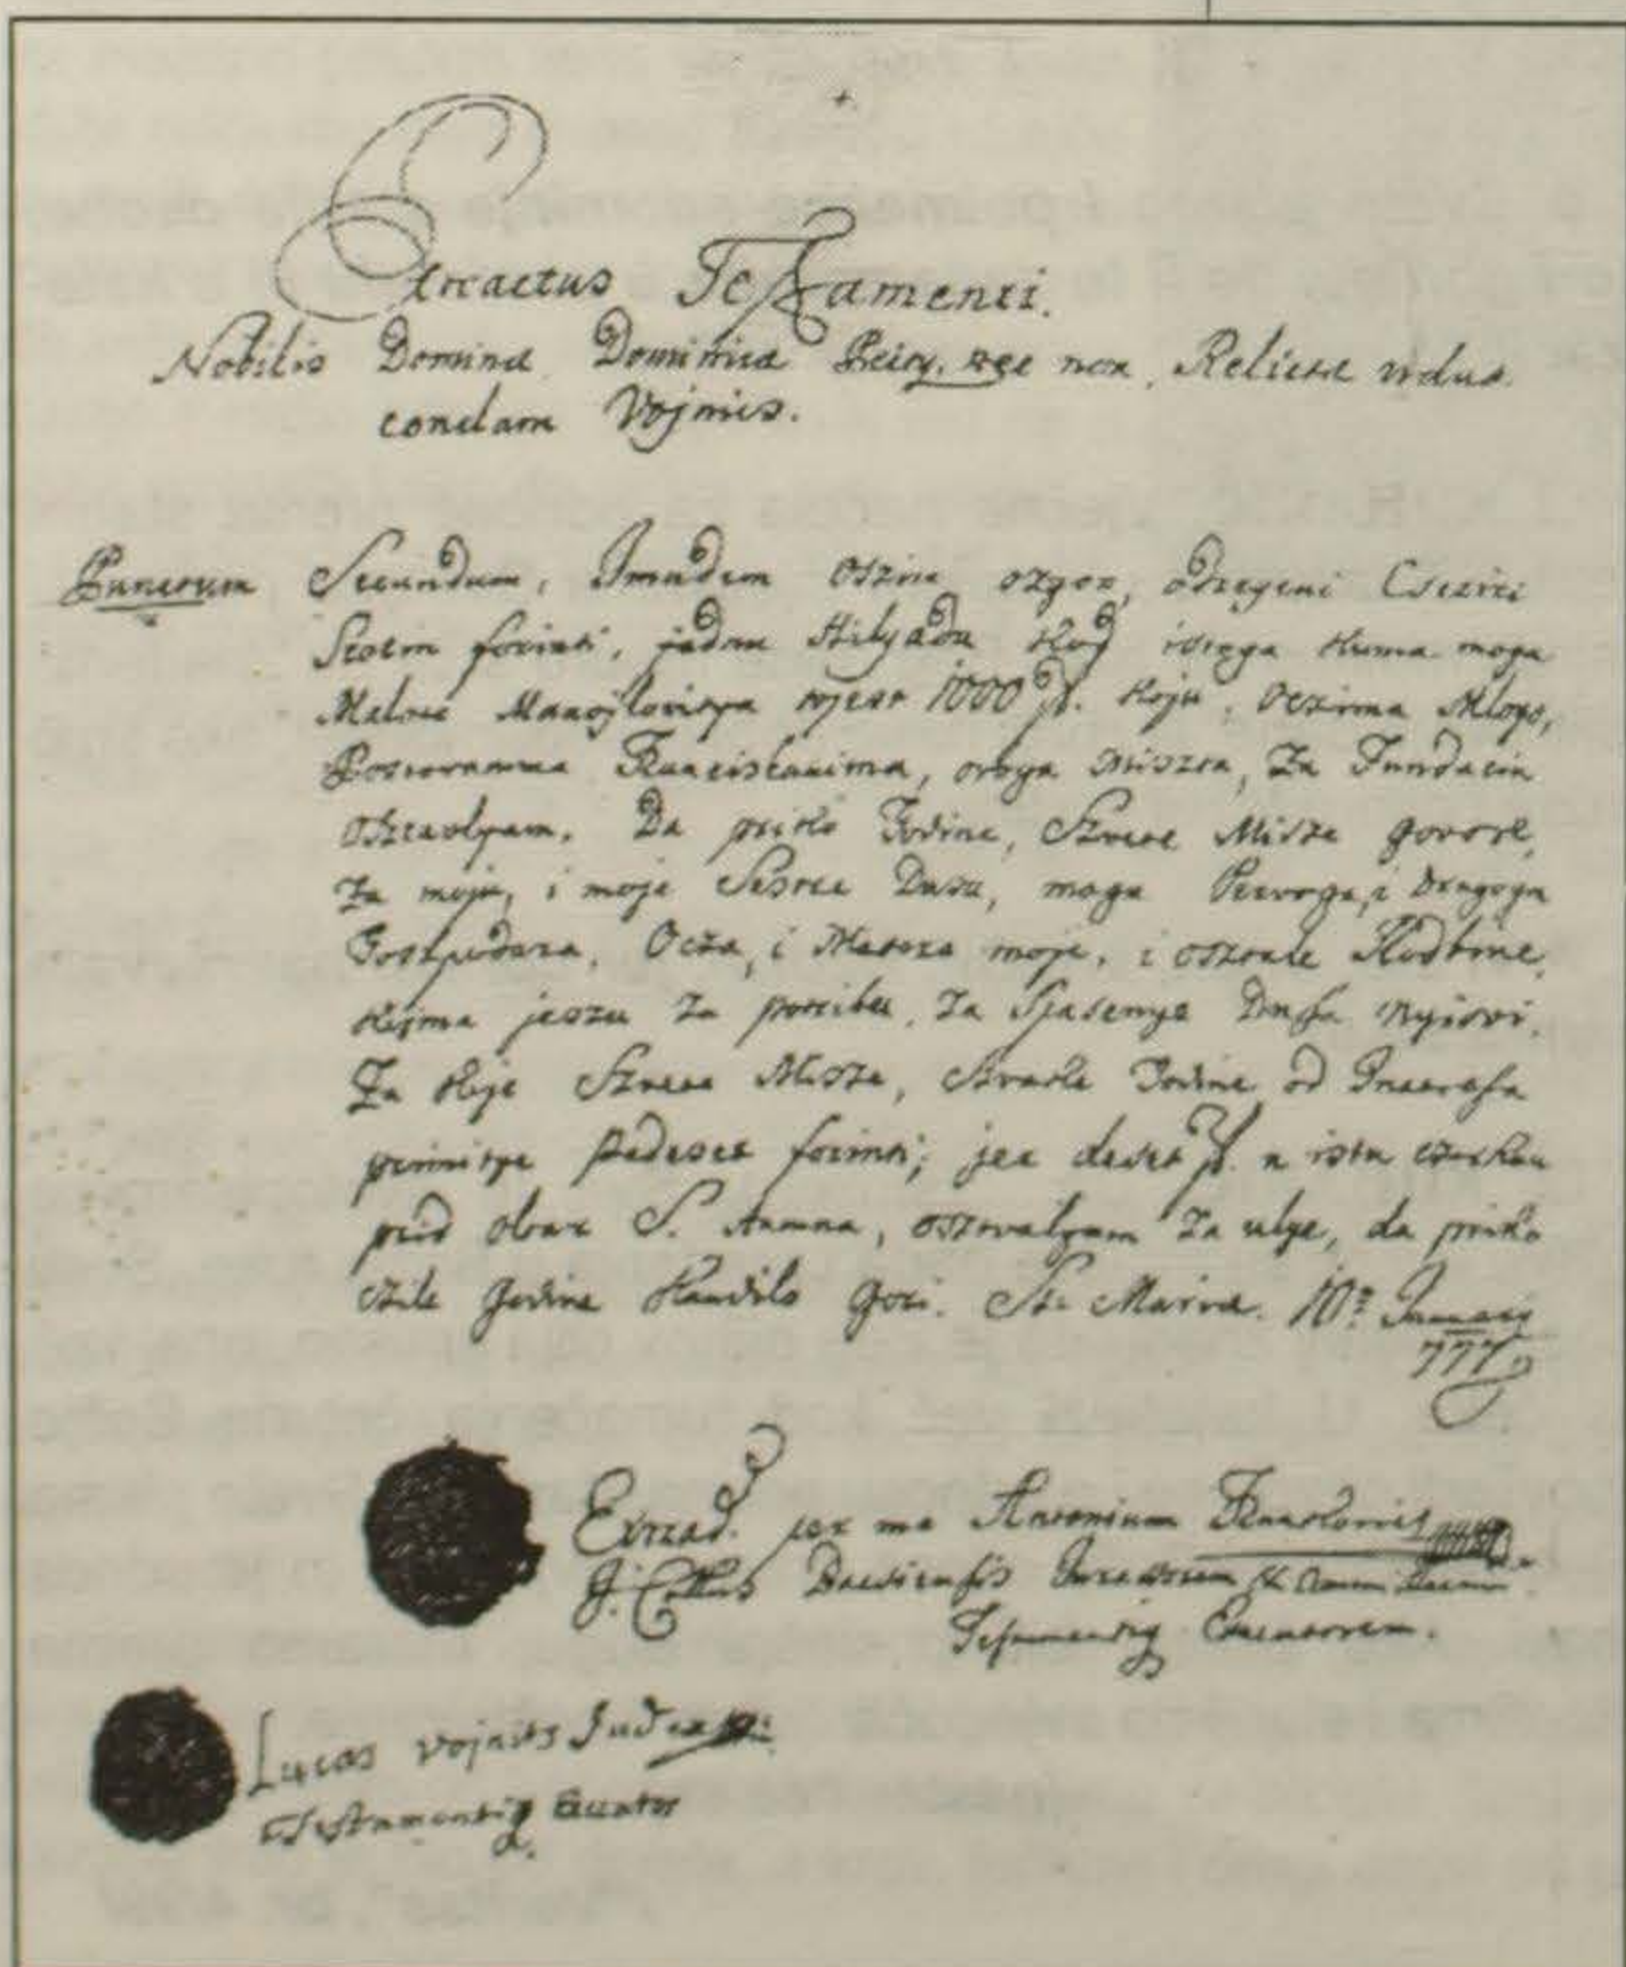 +
Extractus Testamenti.
Nobilis Dominæ Dominicæ nec non Relictæ viduæ
condam Vojnics.
Punctum Secundum, Imadem oszim ozgor,
Stotin forinti, jednu Hilyadu kod istoga kuma moga
Matoſe Manojlovitya 1000 f. koju, Oczima Mlogo,
Postovanima Franciskanima, ovoga Miszta, Za Fundaciu
osztavlyam. Da priko Godine, Szvete Misze govore,
Za moju, i moje Sestre Dusu, moga Pervoga, i Drugoga
Goszpodara, Ocza, i Matere moje, i osztale Rodbine,
kojma jeszu za potribu, Za Spasenye Dusa Nyiovi.
Za koje Szvete Misze, Svake Godine od Interesa
primitye Pedeset forinti; jer deset f. u istu czerkvu
prid oltar S. Annæ, osztavlyam Za ulye, da priko
czile Godine Kandilo gori. St. Mariæ. 10? January
777
Extrad. per me Antonium
I. Cottus Bacsiensis Jurassorem
Testamenty Executorem.
Lucas Vojnits Judex
Testamenty Execuator